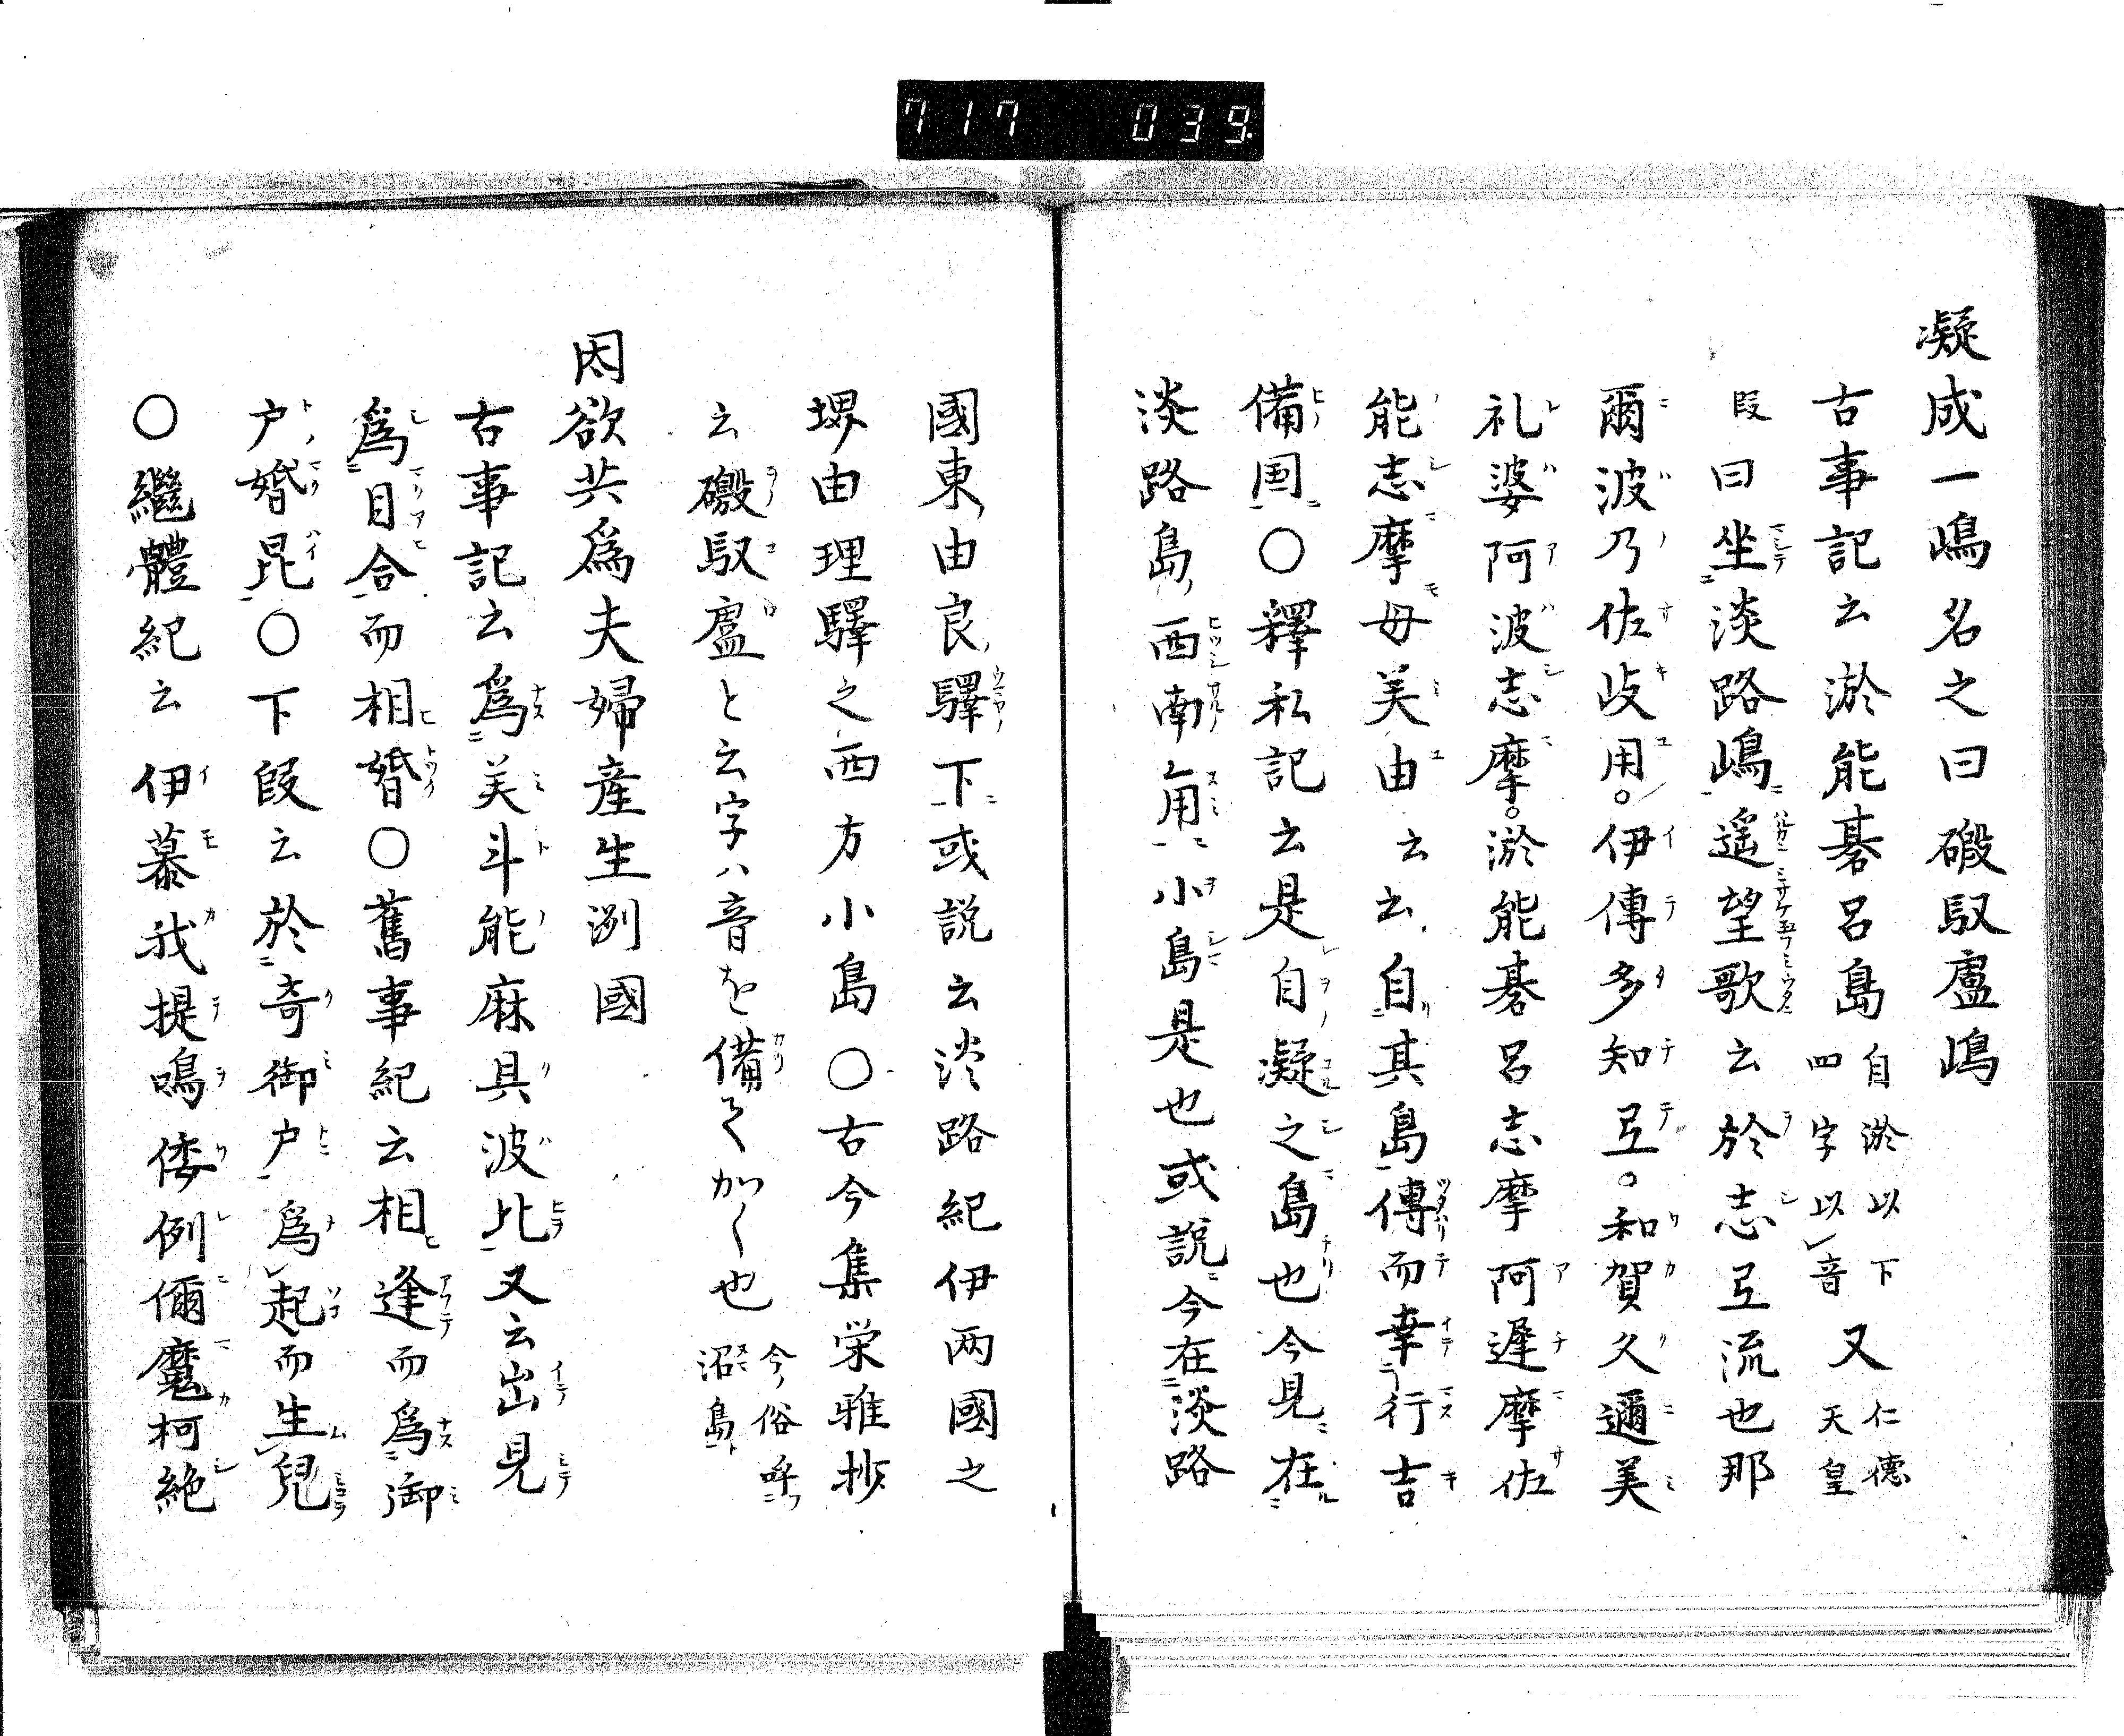 717 039
凝成一嶋名之曰磤馭盧嶋
古事記云淤能碁呂島自淤以下四字以音又仁德天皇
段曰坐淡路嶋遥望歌云於志弖流也那
爾波乃佐岐用。伊傳多知弖。和賀久邇美
礼婆阿波志摩。淤能碁呂志摩阿遲摩佐
能志摩母美由云云自其島傳而幸行吉
備国〇釋私記云是自凝之島也今見在
淡路島西南角小島是也或説今在淡路
國東由良驛下或説云淡路紀伊两國之
堺由理驛之西方小島〇古今集栄雅抄
云磤馭盧と云字ハ音を備て加く也今俗呼沼島
因欲共爲夫婦産生洲國
古事記云爲美斗能麻具波比又云出見
爲目合而相婚〇舊事紀云相逢而爲御
户婚昆〇下段云於奇御户爲起而生兒
〇繼體紀云伊慕我提鳴倭例儞魔柯絁